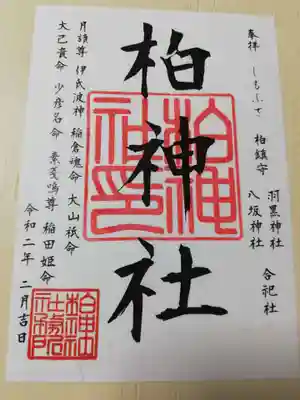 奉拝 しもふさ 柏鎮守
羽黒神社
八坂神社
合祀社
柏神社
月讀尊 伊氐波神 稲倉魂命 大山祇命
大己貴命 少彦名命 素戔嗚尊 稲田姫命
令和二年 二月吉日
柏神社印